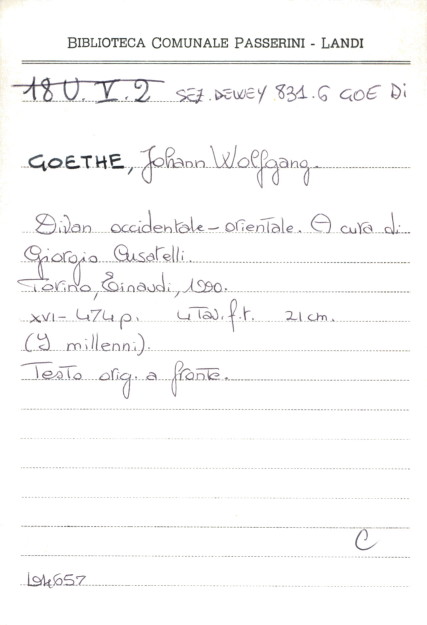 BIBLIOTECA COMUNALE PASSERINI - LANDI
18 U. V. 2 SEZ. DEWEY 831.6 GOE Di
GOETHE, Johann Wolfgang.
Divan occidentale - orientale. A cura di
Giorgio Cusatelli.
Torino, Einaudi, 1990.
XVI - 474 p. 4 Tav. f.t. 21 cm.
(I millenni).
Testo orig. a fronte.
C
194657